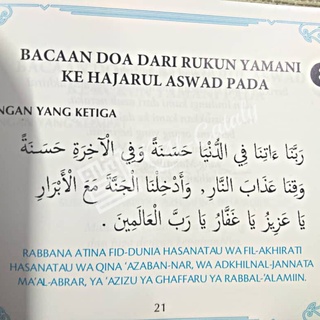 BACAAN DOA DARI RUKUN YAMANI
KE HAJARUL ASWAD PADA
NGAN YANG KETIGA
رَبَّنَا ءَاتِنَا فِي الدُّنْيَا حَسَنَةً وَفِي الْآخِرَةِ حَسَنَةً
وَقِنَا عَذَابَ النَّارِ, وَأَدْخِلْنَا الْجَنَّةَ مَعَ الْأَبْرَارِ
يَا عَزِيزُ يَا غَفَّارُ يَا رَبَّ الْعَالَمِينَ .
RABBANA ATINA FID-DUNIA HASANATAU WA FIL-AKHIRATI
HASANATAU WA QINA 'AZABAN-NAR, WA ADKHILNAL-JANNATA
MA'AL-ABRAR, YA 'AZIZU YA GHAFFARU YA RABBAL-'ALAMIIN.
21